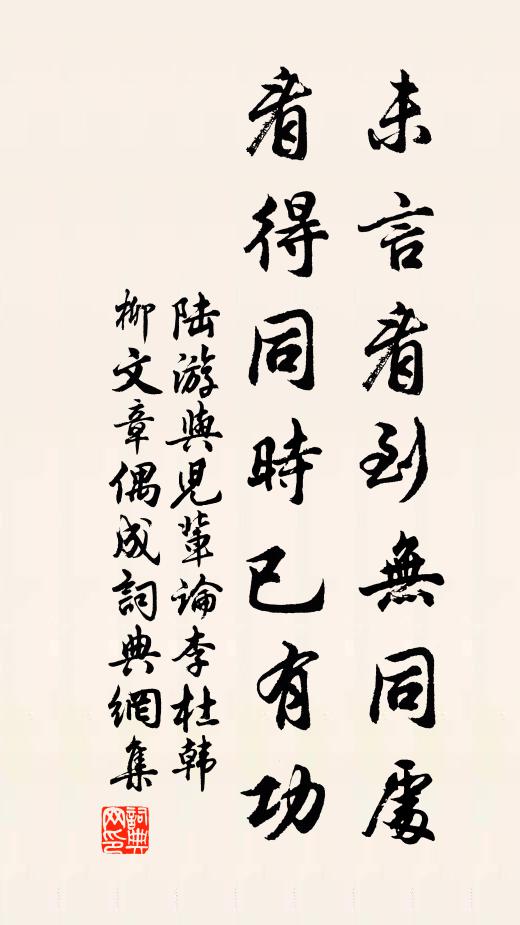 未言看到無同處
看得同時已有功
陸游與兒輩論李杜韓
柳文章偶成詞典網集
詞典
网印